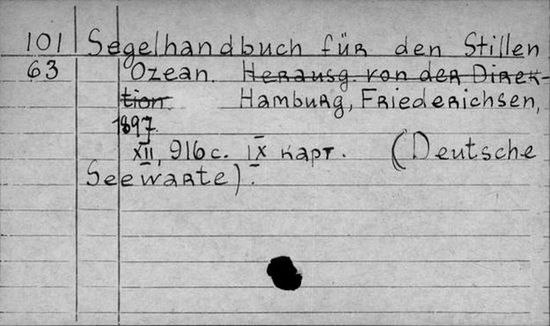 101 Segelhandbuch für den Stillen
63 Ozean. Herausg. von der Direk-
tion Hamburg, Friederichsen,
1897.
XII, 916 с. IX карт. (Deutsche
Seewarte).